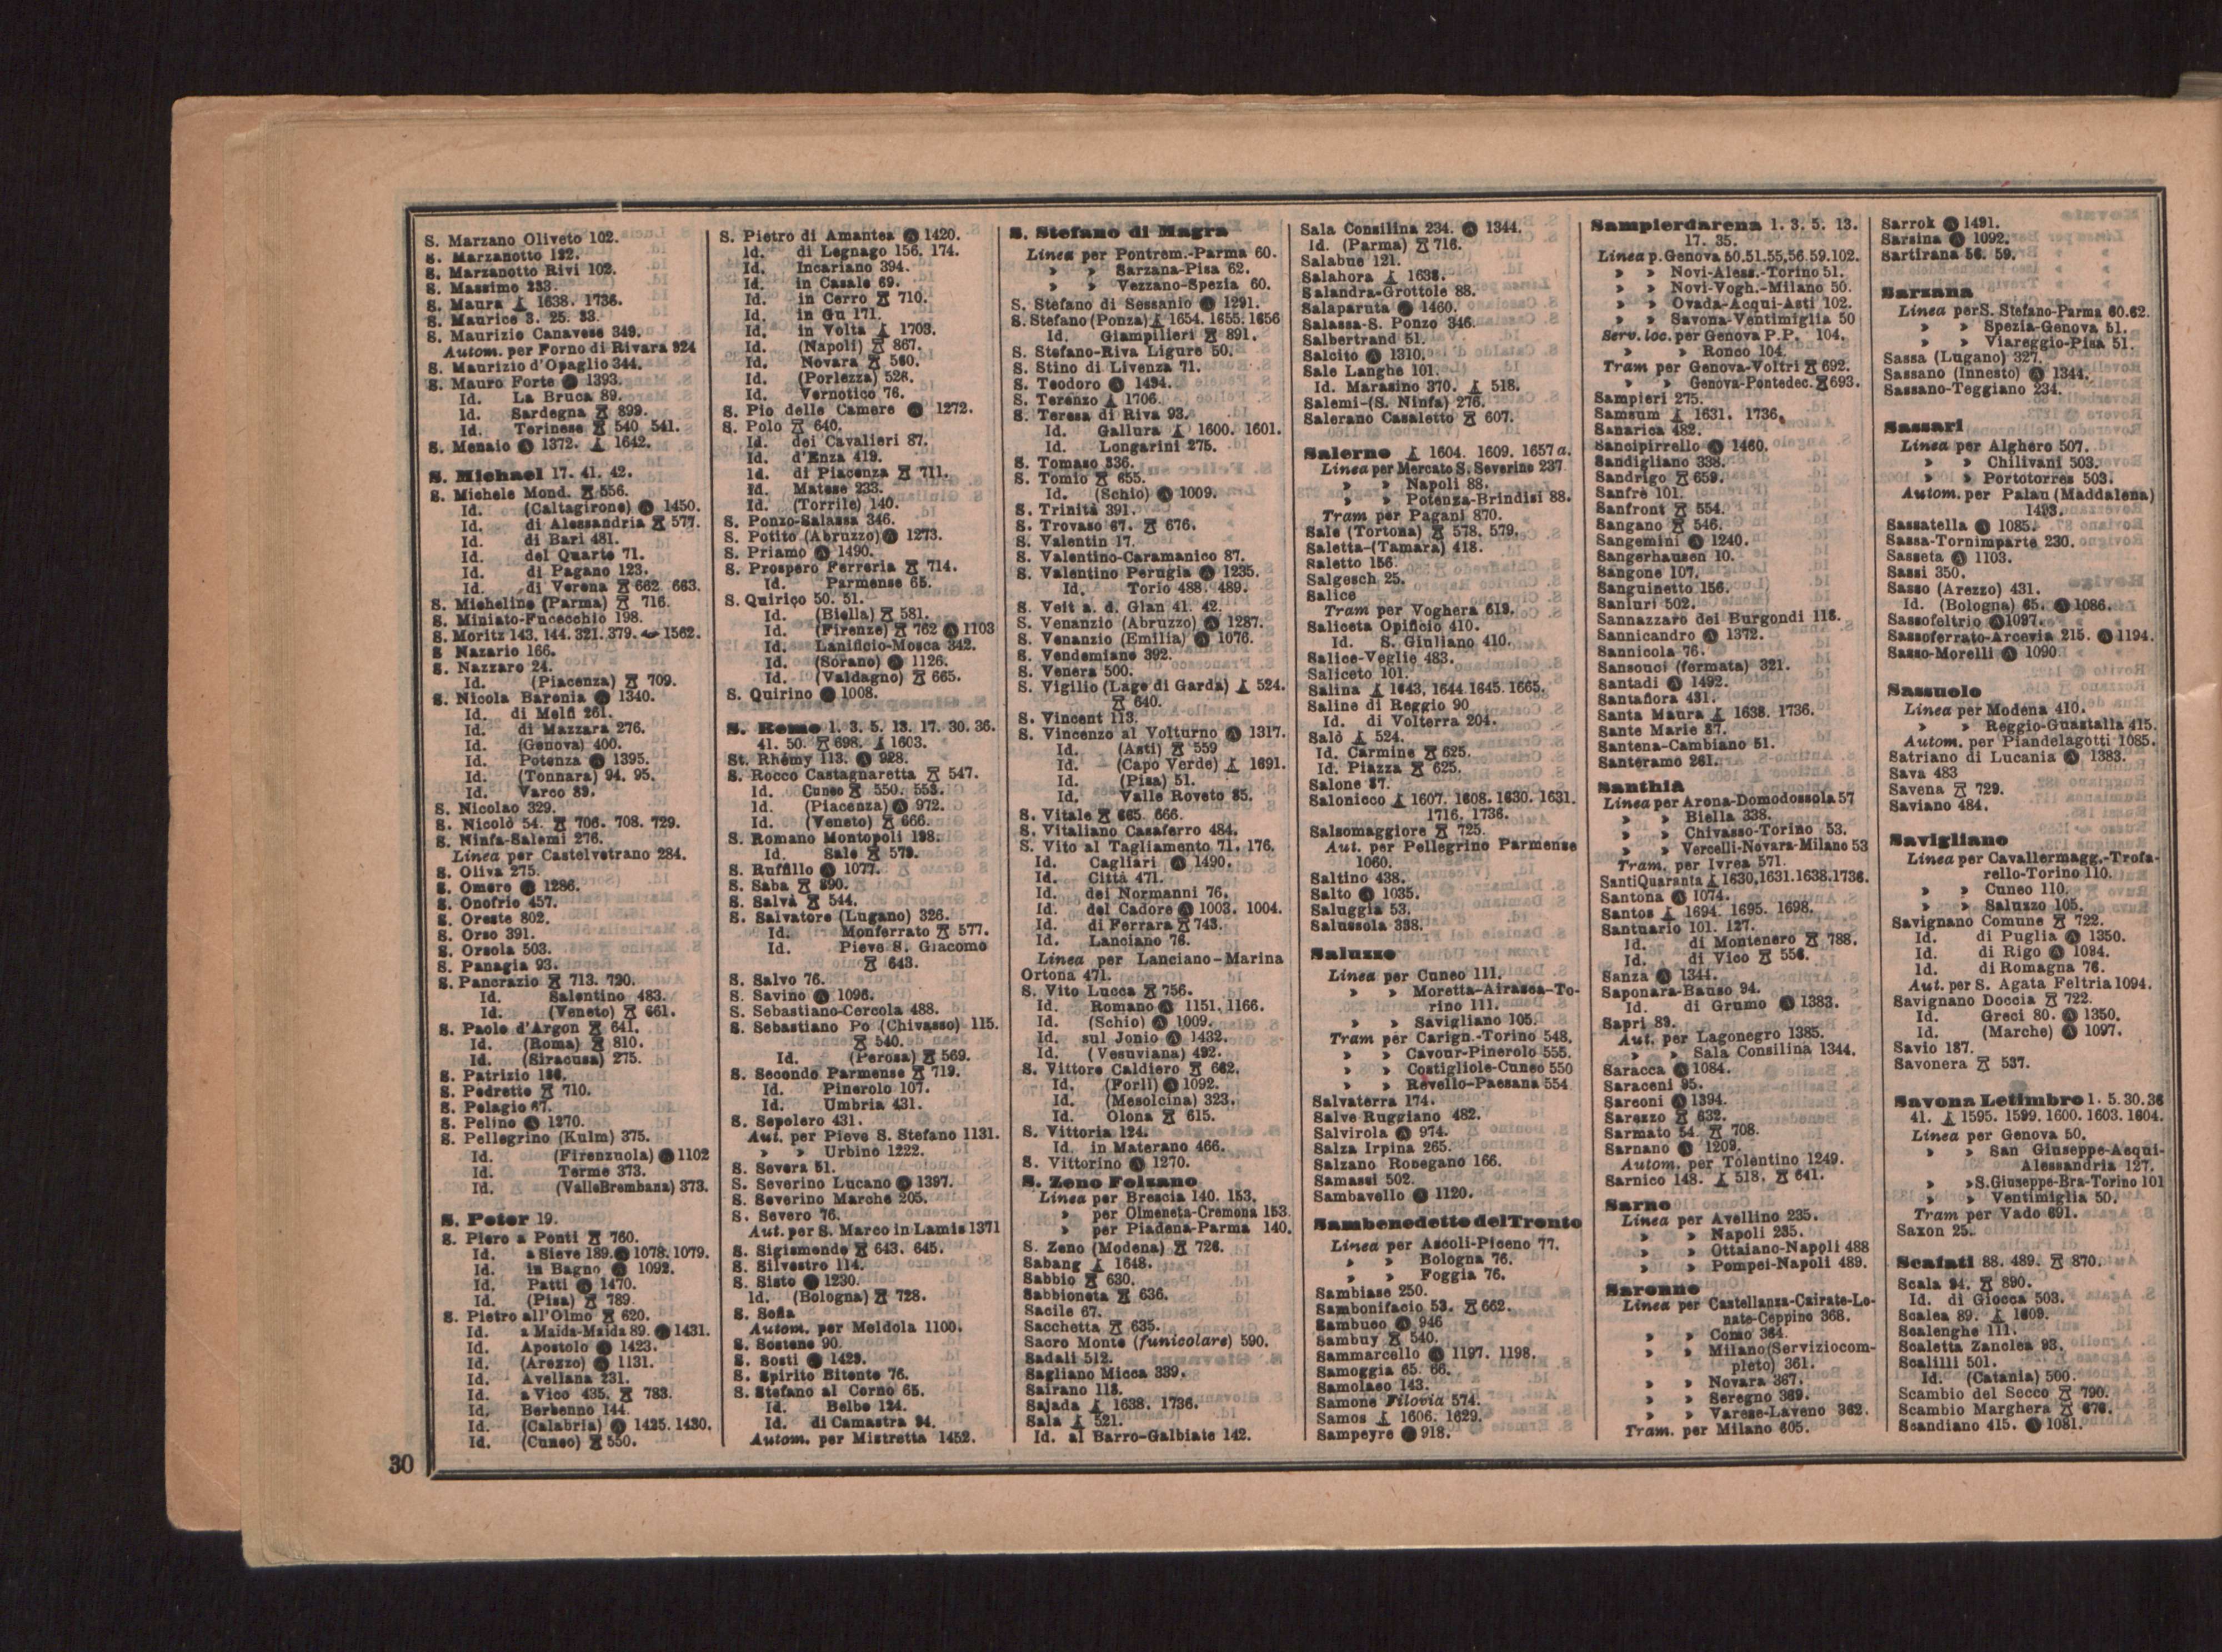 S. Marzano Oliveto 102.
S. Marzanotto 132.
S. Marzanotto Rivi 102.
S. Massimo 233.
S. Maura 1638. 1736.
S. Maurice 3. 25. 33.
S. Maurizio Canavese 349.
Autom. per Forno di Rivara 924
S. Maurizio d'Opaglio 344.
S. Mauro Forte 1393.
Id. La Bruca 89.
Id. Sardegna 899.
Id. Torinese 540 541.
S. Menaio 1372. 1642.
S. Michael 17. 41. 42.
S. Michele Mond. 556.
Id. (Caltagirone) 1450.
Id. di Alessandria 577.
Id. di Bari 481.
Id. del Quarto 71.
Id. di Pagano 123.
Id. di Verona 662. 663.
S. Michelino (Parma) 716.
S. Miniato-Fucecchio 198.
S. Moritz 143. 144. 321. 379. 1562.
S Nazario 166.
S. Nazzaro 24.
Id. (Piacenza) 709.
S. Nicola Baronia 1340.
Id. di Melfi 261.
Id. di Mazzara 276.
Id. (Genova) 400.
Id. Potenza 1395.
Id. (Tonnara) 94. 95.
Id. Varco 89.
S. Nicolao 329.
S. Nicolò 54. 706. 708. 729.
S. Ninfa-Salemi 276.
Linea per Castelvetrano 284.
S. Oliva 275.
S. Omero 1286.
S. Onofrio 457.
S. Oreste 802.
S. Orso 391.
S. Orsola 503.
S. Panagia 93.
S. Pancrazio 713. 790.
Id. Salentino 483.
Id. (Veneto) 661.
S. Paolo d'Argon 641.
Id. (Roma) 810.
Id. (Siracusa) 275.
S. Patrizio
S. Pedretto 710.
S. Pelagio 67.
S. Pelino 1270.
S. Pellegrino (Kulm) 375.
Id. (Firenzuola) 1102
Id. Terme 373.
Id. (ValleBrembana) 373.
S. Peter 19.
S. Piero a Ponti 760.
Id. a Sieve 189. 1078. 1079.
Id. in Bagno 1092.
Id. Patti 1470.
Id. (Pisa) 789.
S. Pietro all'Olmo 620.
Id. a Maida-Maida 89. 1431.
Id. Apostolo 1423.
Id. (Arezzo) 1131.
Id. Avellana 231.
Id. a Vico 435. 783.
Id. Berbenno 144.
Id. (Calabria) 1425. 1430.
Id. (Cuneo) 550.
S. Pietro di Amantea 1420.
Id. di Legnago 156. 174.
Id. Incariano 394.
Id. in Casale 69.
Id. in Cerro 710.
Id. in Gu 171.
Id. in Volta 1703.
Id. (Napoli) 867.
Id. Novara 560.
Id. (Porlezza) 526.
Id. Vernotico 76.
S. Pio delle Camere 1272.
S. Polo 640.
Id. dei Cavalieri 87.
Id. d'Enza 419.
Id. di Piacenza 711.
Id. Matese 233.
Id. (Torrile) 140.
S. Ponzo-Salassa 346.
S. Potito (Abruzzo) 1273.
S. Priamo 1490.
S. Prospero Ferreria 714.
Id. Parmense 65.
S. Quirico 50. 51.
Id. (Biella) 581.
Id. (Firenze) 762 1103
Id. Lanificio-Mosca 342.
Id. (Sorano) 1126.
Id. (Valdagno) 665.
S. Quirino 1008.
S. Remo 1. 3. 5. 13. 17. 30. 36.
41. 50. 698. 1603.
St. Rhémy 113. 928.
S. Rocco Castagnaretta 547.
Id. Cuneo 550. 553.
Id. (Piacenza) 972.
Id. (Veneto) 666.
S. Romano Montopoli 198.
Id. Sale 579.
S. Ruffillo 1077.
S. Saba 890.
S. Salvà 544.
S. Salvatore (Lugano) 326.
Id. Monferrato 577.
Id. Pieve S. Giacomo
643.
S. Salvo 76.
S. Savino 1096.
S. Sebastiano-Cercola 488.
S. Sebastiano Po (Chivasso) 115.
540.
Id. (Perosa) 569.
S. Secondo Parmense 719.
Id. Pinerolo 107.
Id. Umbria 431.
S. Sepolcro 431.
Aut. per Pieve S. Stefano 1131.
» » Urbino 1222.
S. Severa 51.
S. Severino Lucano 1397.
S. Severino Marche 205.
S. Severo 76.
Aut. per S. Marco in Lamis 1371
S. Sigismondo 643. 645.
S. Silvestro 114.
S. Sisto 1230.
Id. (Bologna) 728.
S. Sofia
Autom. per Meldola 1100.
S. Sostene 90.
S. Sosti 1429.
S. Spirito Bitonto 76.
S. Stefano al Corno 65.
Id. Belbo 124.
Id. di Camastra 94.
Autom. per Mistretta 1452.
S. Stefano di Magra
Linea per Pontrem.-Parma 60.
» » Sarzana-Pisa 62.
» » Vezzano-Spezia 60.
S. Stefano di Sessanio 1291.
S. Stefano (Ponza) 1654. 1655. 1656
Id. Giampilieri 891.
S. Stefano-Riva Ligure 50.
S. Stino di Livenza 71.
S. Teodoro 1494.
S. Terenzo 1706.
S. Teresa di Riva 93.
Id. Gallura 1600. 1601.
Id. Longarini 275.
S. Tomaso 336.
S. Tomio 655.
Id. (Schio) 1009.
S. Trinità 391.
S. Trovaso 67. 676.
S. Valentin 17.
S. Valentino-Caramanico 87.
S. Valentino Perugia 1235.
Id. Torio 488. 489.
S. Veit a. d. Glan 41. 42.
S. Venanzio (Abruzzo) 1287.
S. Venanzio (Emilia) 1076.
S. Vendemiano 392.
S. Venera 500.
S. Vigilio (Lago di Garda) 524.
640.
S. Vincent 113.
S. Vincenzo al Volturno 1317.
Id. (Asti) 559
Id. (Capo Verde) 1691.
Id. (Pisa) 51.
Id. Valle Roveto 85.
S. Vitale 665. 666.
S. Vitaliano Casaferro 484.
S. Vito al Tagliamento 71. 176.
Id. Cagliari 1490.
Id. Città 471.
Id. dei Normanni 76.
Id. del Cadore 1003. 1004.
Id. di Ferrara 743.
Id. Lanciano 76.
Linea per Lanciano-Marina
Ortona 471.
S. Vito Lucca 756.
Id. Romano 1151. 1166.
Id. (Schio) 1009.
Id. sul Jonio 1432.
Id. (Vesuviana) 492.
S. Vittore Caldiero 662.
Id. (Forlì) 1092.
Id. (Mesolcina) 323.
Id. Olona 615.
S. Vittoria 124.
Id. in Materano 466.
S. Vittorino 1270.
S. Zeno Folzano
Linea per Brescia 140. 153.
» per Olmeneta-Cremona 153
» per Piadena-Parma 140.
S. Zeno (Modena) 726.
Sabang 1648.
Sabbio 630.
Sabbioneta 636.
Sacile 67.
Sacchetta 635.
Sacro Monte (funicolare) 590.
Sadali 512.
Sagliano Micca 339.
Sairano 118.
Sajada 1638. 1736.
Sala 521.
Id. al Barro-Galbiate 142.
Sala Consilina 234. 1344.
Id. (Parma) 716.
Salabue 121.
Salahora 1638.
Salandra-Grottole 88.
Salaparuta 1460.
Salassa-S. Ponzo 346.
Salbertrand 51.
Salcito 1310.
Sale Langhe 101.
Id. Marasino 370. 518.
Salemi-(S. Ninfa) 276.
Salerano Casaletto 607.
Salerno 1604. 1609. 1657a.
Linea per Mercato S. Severino 237
» » Napoli 88.
» » Potenza-Brindisi 88.
Tram per Pagani 870.
Sale (Tortona) 578. 579.
Saletta-(Tamara) 418.
Saletto 156.
Salgesch 25.
Salice
Tram per Voghera 619.
Saliceta Opificio 410.
Id. S. Giuliano 410.
Salice-Veglie 483.
Saliceto 101.
Salina 1643, 1644. 1645. 1665.
Saline di Reggio 90
Id. di Volterra 204.
Salò 524.
Id. Carmine 625.
Id. Piazza 625.
Salone 87.
Salonicco 1607. 1608. 1630. 1631.
1716. 1736.
Salsomaggiore 725.
Aut. per Pellegrino Parmense
1060.
Saltino 438.
Salto 1035.
Saluggia 53.
Salussola 338.
Saluzzo
Linea per Cuneo 111.
» » Moretta-Airasca-To-
rino 111.
» » Savigliano 105.
Tram per Carign.-Torino 548.
» » Cavour-Pinerolo 555.
» » Costigliole-Cuneo 550
» » Revello-Paesana 554
Salvaterra 174.
Salve Ruggiano 482.
Salvirola 974.
Salza Irpina 265.
Salzano Robegano 166.
Samassi 502.
Sambavello 1120.
Sambenedetto del Tronto
Linea per Ascoli-Piceno 77.
» » Bologna 76.
» » Foggia 76.
Sambiase 250.
Sambonifacio 53. 662.
Sambuco 946
Sambuy 540.
Sammarcello 1197. 1198.
Samoggia 65. 66.
Samolaco 143.
Samone Filovia 574.
Samos 1606. 1629.
Sampeyre 918.
Sampierdarena 1. 3. 5. 13.
17. 35.
Linea p. Genova 50. 51. 55. 56. 59. 102.
» » Novi-Aless.-Torino 51.
» » Novi-Vogh.-Milano 50.
» » Ovada-Acqui-Asti 102.
» » Savona-Ventimiglia 50
Serv. loc. per Genova P.P. 104.
» » Ronco 104.
Tram per Genova-Voltri 692.
» » Genova-Pontedec. 693.
Sampieri 275.
Samsum 1631. 1736.
Sanarica 482.
Sancipirrello 1460.
Sandigliano 338.
Sandrigo 659.
Sanfrè 101.
Sanfront 554.
Sangano 546.
Sangemini 1240.
Sangerhausen 10.
Sangone 107.
Sanguinetto 156.
Sanluri 502.
Sannazzaro dei Burgondi 118.
Sannicandro 1372.
Sannicola 76.
Sansouci (fermata) 321.
Santadi 1492.
Santafiora 431.
Santa Maura 1638. 1736.
Sante Marie 87.
Santena-Cambiano 51.
Santeramo 261.
Santhià
Linea per Arona-Domodossola 57
» » Biella 338.
» » Chivasso-Torino 53.
» » Vercelli-Novara-Milano 53
Tram. per Ivrea 571.
SantiQuaranta 1630, 1631. 1638. 1736.
Santona 1074.
Santos 1694. 1695. 1698.
Santuario 101. 127.
Id. di Montenero 788.
Id. di Vico 556.
Sanza 1344.
Saponara-Bauso 94.
Id. di Grumo 1383.
Sapri 89.
Aut. per Lagonegro 1385.
» » Sala Consilina 1344.
Saracca 1084.
Saraceni 95.
Sarconi 1394.
Sarezzo 632.
Sarmato 54. 708.
Sarnano 1209.
Autom. per Tolentino 1249.
Sarnico 148. 518. 641.
Sarno
Linea per Avellino 235.
» » Napoli 235.
» » Ottaiano-Napoli 488
» » Pompei-Napoli 489.
Saronno
Linea per Castellanza-Cairate-Lo-
nate-Ceppino 368.
» » Como 364.
» » Milano (Serviziocom-
pleto) 361.
» » Novara 367.
» » Seregno 369.
» » Varese-Laveno 362.
Tram. per Milano 605.
Sarrok 1491.
Sarsina 1092.
Sartirana 56. 59.
Sarzana
Linea per S. Stefano-Parma 60. 62.
» » Spezia-Genova 51.
» » Viareggio-Pisa 51.
Sassa (Lugano) 327.
Sassano (Innesto) 1344.
Sassano-Teggiano 234.
Sassari
Linea per Alghero 507.
» » Chilivani 503.
» » Portotorres 503.
Autom. per Palau (Maddalena)
1493.
Sassatella 1085.
Sassa-Tornimparte 230.
Sasseta 1103.
Sassi 350.
Sasso (Arezzo) 431.
Id. (Bologna) 65. 1086.
Sassofeltrio 1097.
Sassoferrato-Arcevia 215. 1194.
Sasso-Morelli 1090.
Sassuolo
Linea per Modena 410.
» » Reggio-Guastalla 415.
Autom. per Piandelagotti 1085.
Satriano di Lucania 1383.
Sava 483
Savena 729.
Saviano 484.
Savigliano
Linea per Cavallermagg.-Trofa-
rello-Torino 110.
» » Cuneo 110.
» » Saluzzo 105.
Savignano Comune 722.
Id. di Puglia 1350.
Id. di Rigo 1094.
Id. di Romagna 76.
Aut. per S. Agata Feltria 1094.
Savignano Doccia 722.
Id. Greci 80. 1350.
Id. (Marche) 1097.
Savio 187.
Savonera 537.
Savona Letimbro 1. 5. 30. 36
41. 1595. 1599. 1600. 1603. 1604.
Linea per Genova 50.
» » San Giuseppe-Acqui-
Alessandria 127.
» » S. Giuseppe-Bra-Torino 101
» » Ventimiglia 50.
Tram per Vado 691.
Saxon 25.
Scafati 88. 489. 870.
Scala 94. 890.
Id. di Giocca 503.
Scalea 89. 1609.
Scalenghe 111.
Scaletta Zanclea 93.
Scalilli 501.
Id. (Catania) 500.
Scambio del Secco 790.
Scambio Marghera 676.
Scandiano 415. 1081.
30